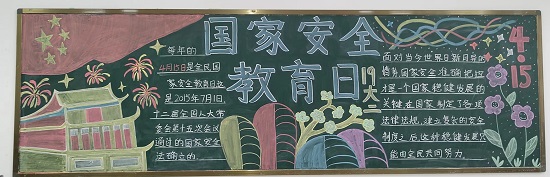 国家安全
教育日
每年的
4月15日是全民国
家安全教育日这
是2015年7月1日,
十二届全国人大常
委会第十五次会议
通过的国家安全
法确立的
19大
面对当今世界日新月异的
国家安全准确把
一个国家稳健发展的
关键在国家制定了各项
法律法规,建立健全的安全
制度之后这种稳健发展只
能由全民共同努力。
4.15